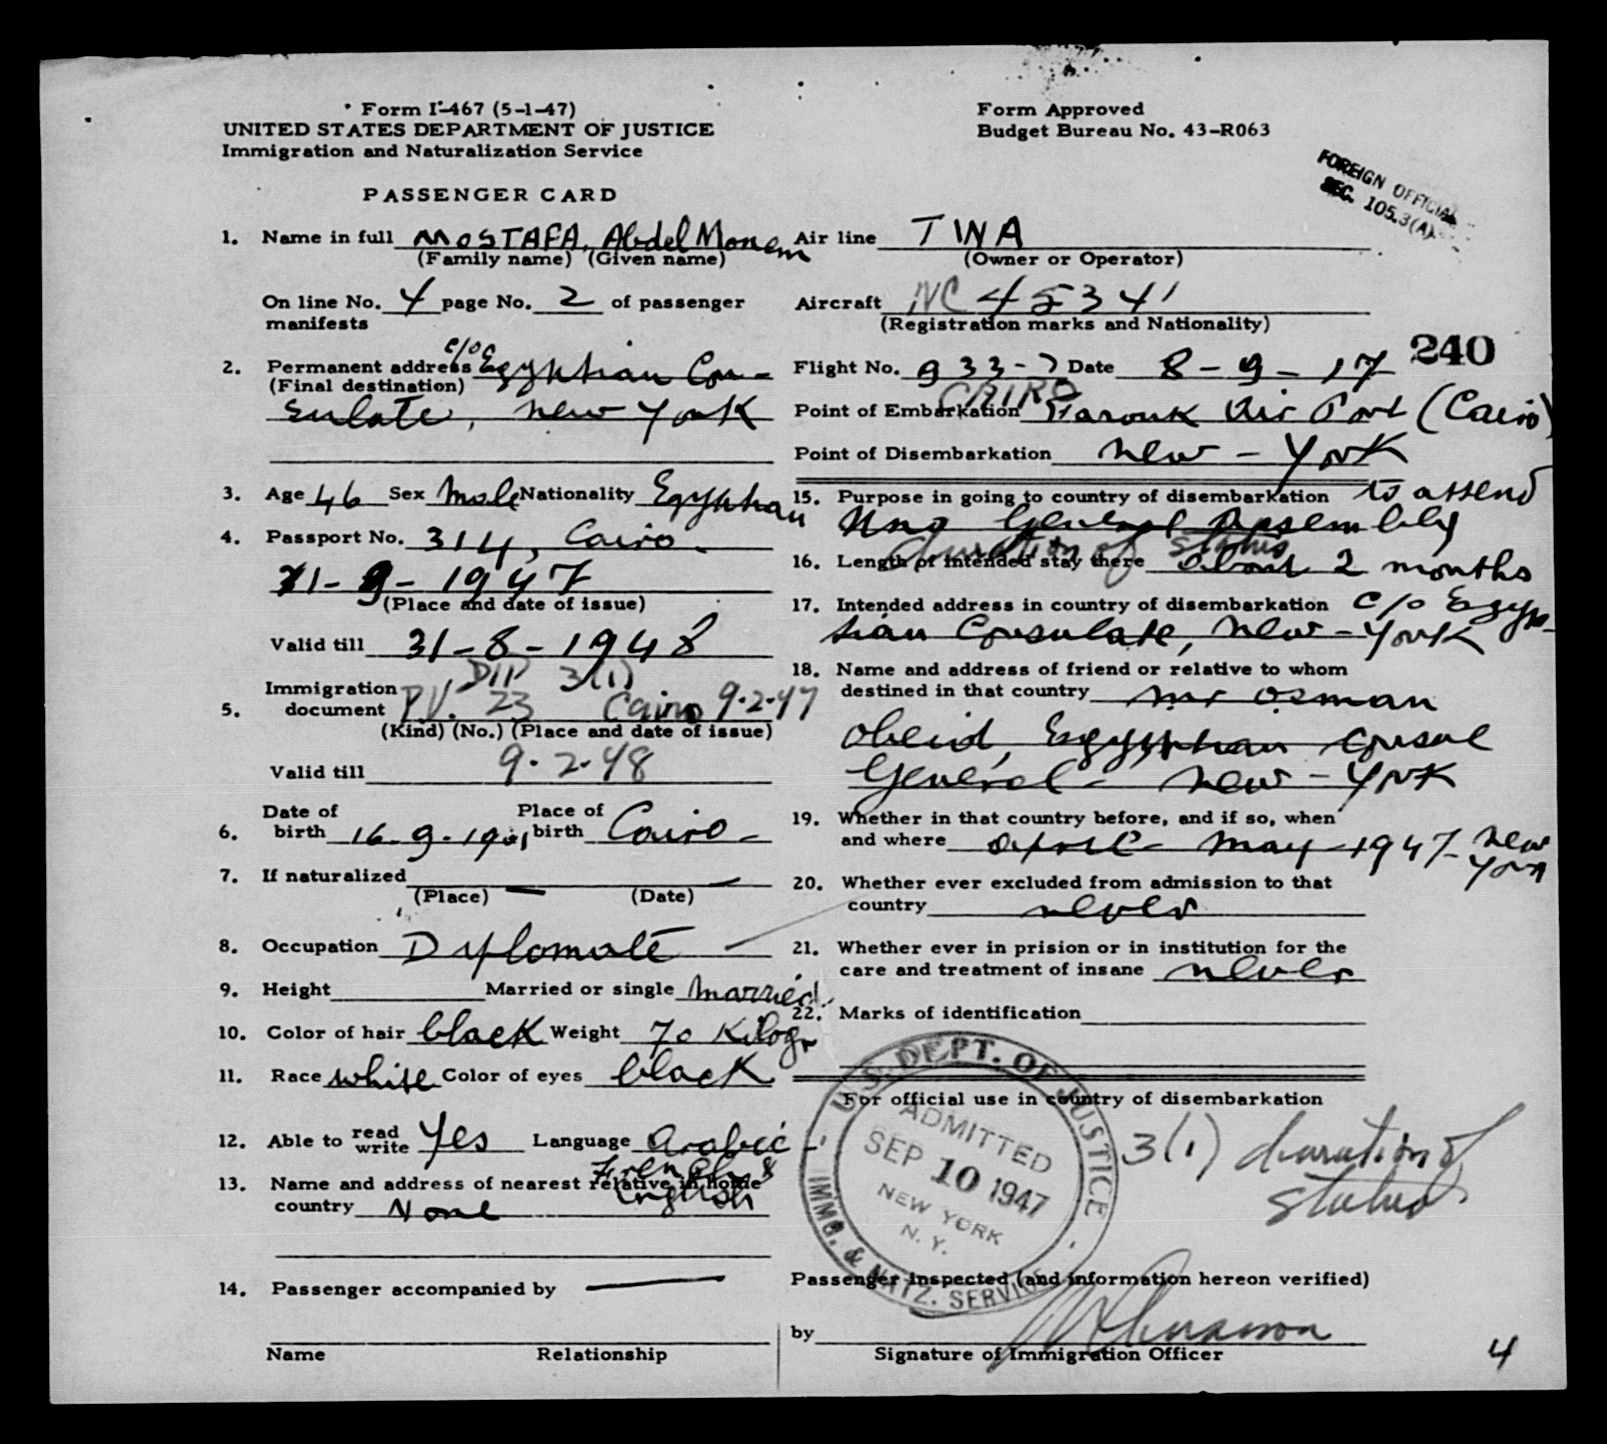 Form I-467 (5-1-47)
UNITED STATES DEPARTMENT OF JUSTICE
Immigration and Naturalization Service
PASSENGER CARD
Form Approved
Budget Bureau No. 43-R063
FOREIGN OFFICIAL
SEC. 105.3(A)
1. Name in full MOSTAFA, Abdel Monem
(Family name) (Given name)
On line No. 4 page No. 2 of passenger
manifests
2. Permanent address c/o Egyptian Con-
(Final destination)
sulate, New York
3. Age 46 Sex Male Nationality Egyptian
4. Passport No. 314, Cairo.
1947
(Place and date of issue)
Valid till 31-8-1948
DIP 3(1)
5. Immigration document P.V. 23 Cairo 9.2.47
(Kind) (No.) (Place and date of issue)
Valid till 9.2.48
6. Date of birth 16.9.1901 Place of birth Cairo -
7. If naturalized
(Place) — (Date)
8. Occupation Dyplomate
9. Height Married or single married
10. Color of hair black Weight 70 Kilogr
11. Race white Color of eyes black
12. Able to read write Yes Language Arabic
French &
English
13. Name and address of nearest relative in home
country None
14. Passenger accompanied by —
Name Relationship
Air line TWA
(Owner or Operator)
Aircraft NC 45341
(Registration marks and Nationality)
240
Flight No. 933-7 Date 8-9-17
CAIRO
Point of Embarkation Farouk Air Port (Cairo)
Point of Disembarkation New-York
15. Purpose in going to country of disembarkation to attend
Uno General Assembly
duration of status
16. Length of intended stay there about 2 months
17. Intended address in country of disembarkation c/o Egyp-
tian Consulate, New-York
18. Name and address of friend or relative to whom
destined in that country Mr Osman
Obeid, Egyptian Consul
General - New-York
19. Whether in that country before, and if so, when
and where April - May 1947 - New
York
20. Whether ever excluded from admission to that
country never
21. Whether ever in prision or in institution for the
care and treatment of insane never
22. Marks of identification
For official use in country of disembarkation
U.S. DEPT. OF JUSTICE
ADMITTED
SEP 10 1947
NEW YORK
N. Y.
IMMG. & NATZ. SERVICE
3(1) duration of
status
Passenger inspected (and information hereon verified)
by
Signature of Immigration Officer
4